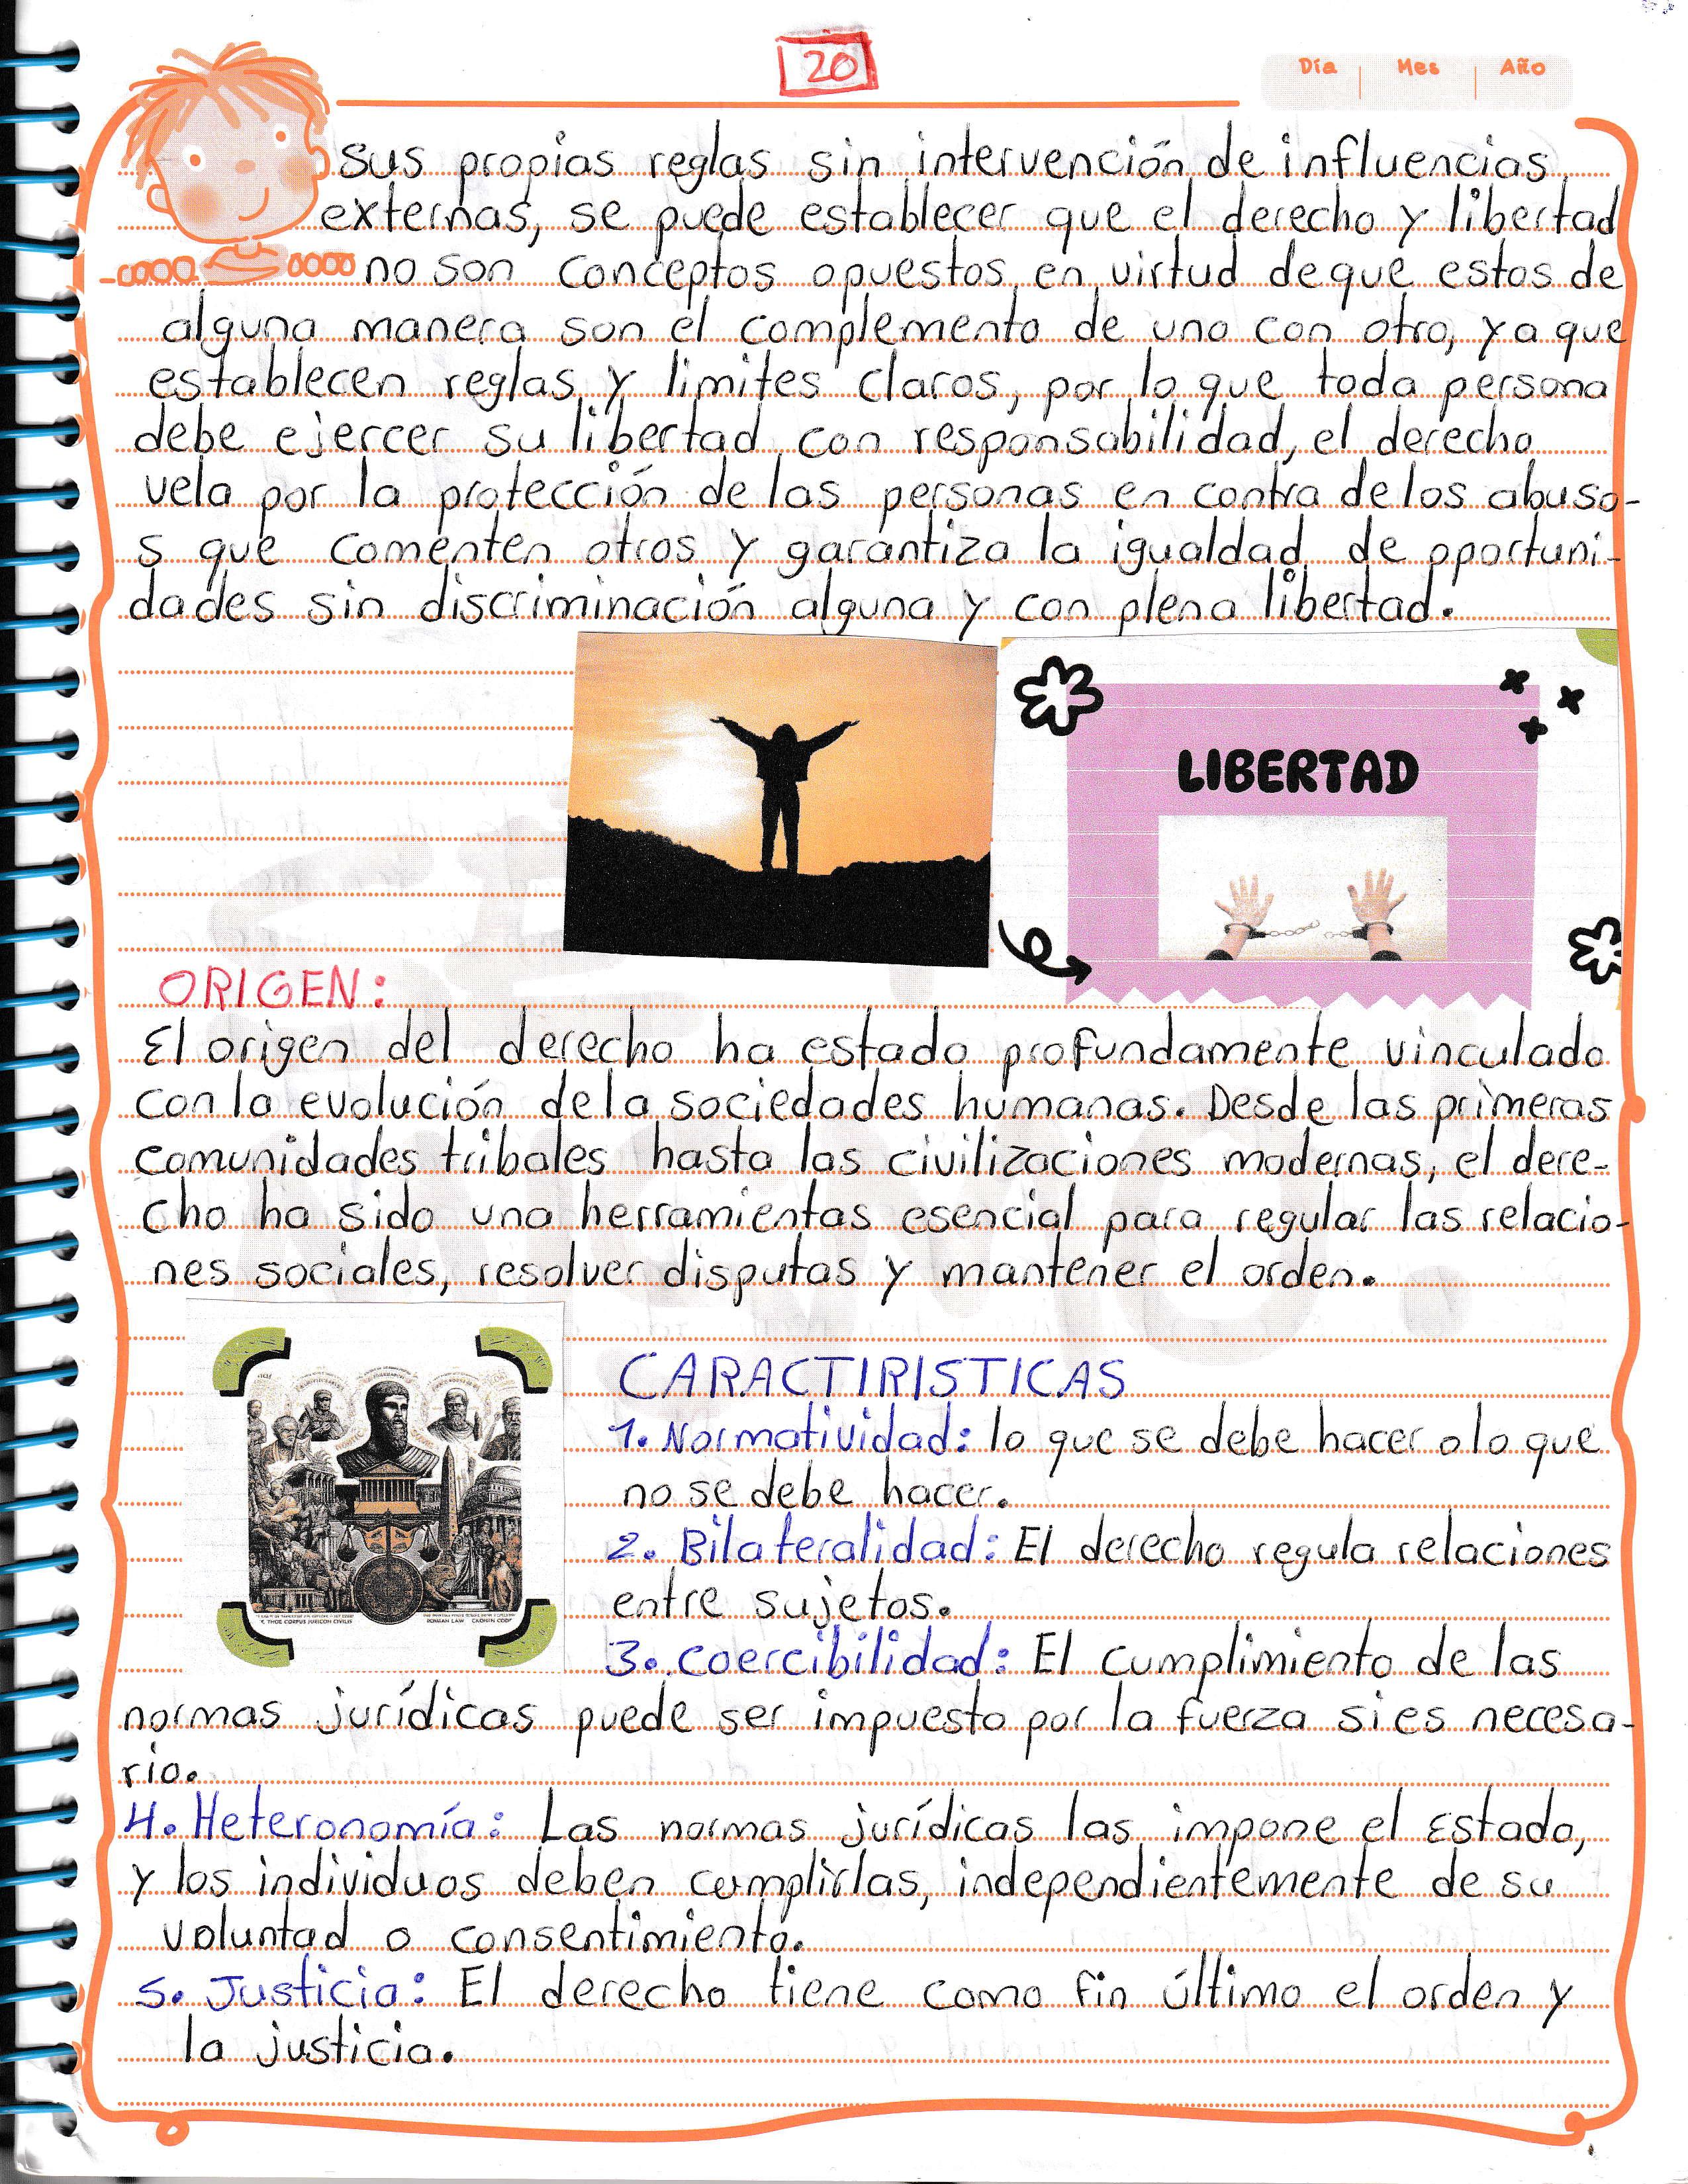 20
Día Mes Año
sus propias reglas sin intervención de influencias
externas, se puede establecer que el derecho y libertad
no son conceptos opuestos en virtud de que estos de
alguna manera son el complemento de uno con otro, ya que
establecen reglas y limites claros, por lo que toda persona
debe ejercer su libertad con responsabilidad, el derecho
vela por la protección de las personas en contra de los abuso-
s que comenten otros y garantiza la igualdad de oportuni-
dades sin discriminación alguna y con plena libertad.
LIBERTAD
ORIGEN:
El origen del derecho ha estado profundamente vinculado
con la evolución de la sociedades humanas. Desde las primeras
comunidades tribales hasta las civilizaciones modernas, el dere-
cho ha sido una herramientas esencial para regular las relacio-
nes sociales, resolver disputas y mantener el orden.
CARACTIRISTICAS
1. Normatividad: lo que se debe hacer o lo que
no se debe hacer.
2. Bilateralidad: El derecho regula relaciones
entre sujetos.
3. coercibilidad: El cumplimiento de las
normas jurídicas puede ser impuesto por la fuerza si es necesa-
rio.
4. Heteronomía: Las normas jurídicas las impone el Estado,
y los individuos deben cumplirlas, independientemente de su
voluntad o consentimiento.
5. Justicia: El derecho tiene como fin último el orden y
la justicia.